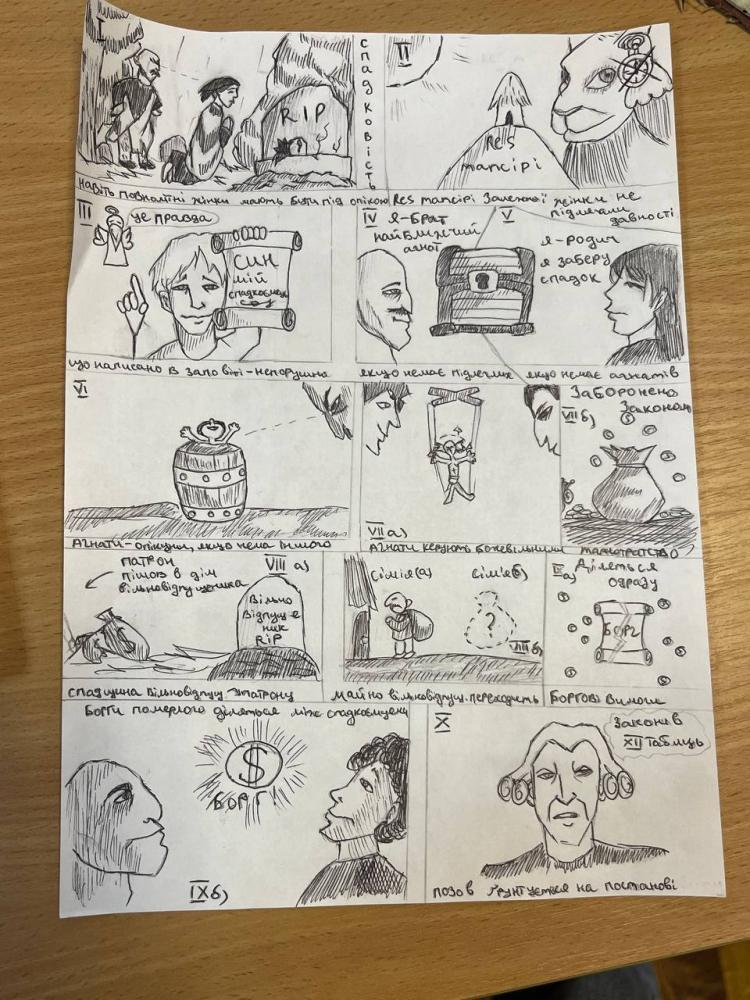 I
RIP
СПАДКОВІСТЬ
II
Res
mancipi
навіть повнолітні жінки мають бути під опікою
Res mancipi Залежної жінки не
підлягали
давності
III
це правда
СИН
мій
спадкоємець
що написано в заповіті - непорушна
IV
я - брат
найближчий
агнат
V
я - родич
я заберу
спадок
якщо немає підлеглих
якщо немає агнатів
VI
Агнати - опікуни, якщо нема іншого
VII а)
Агнати керують божевільними
Заборонено
VII б) Законом
марнотратство
VIII а)
патрон
пішов в дім
вільновідпущеника
Вільно
відпуще
ник
RIP
спадщина вільновідпущ. патрону
сім'я(а)
сім'я(б)
?
VIII б)
майно вільновідпущ. переходить
IX а)
Діляться
одразу
БОРГ
Боргові вимоги
Борги померлого діляться між спадкоємцями
$
БОРГ
IX б)
X
Законів
XII таблиць
позов ґрунтується на постанові